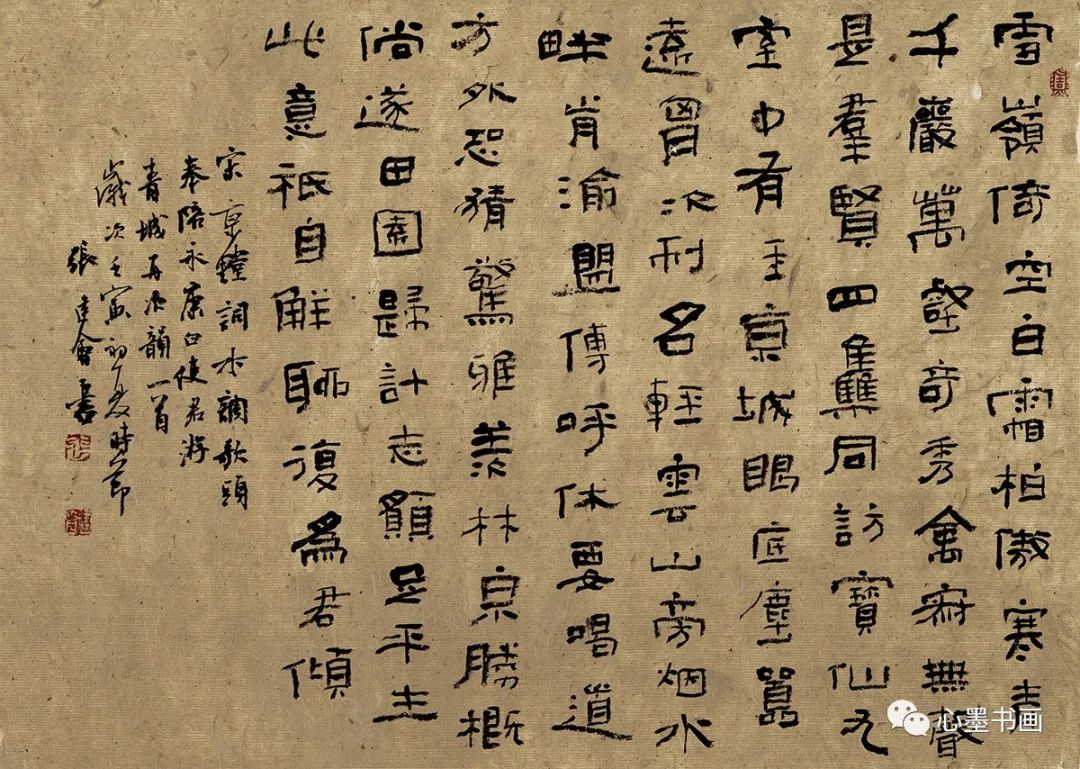 雪嶺倚空白霜柏傲寒青
千巖萬壑奇秀禽寂無聲
是羣賢四集同訪寶仙九
室中有玉京城眼底塵囂
遠胷次利名輕雲山旁烟水
畔肯渝盟傳呼休要喝道
方外恐猜驚雅羨林泉勝概
倘遂田園歸計志願足平生
此意祇自解聊復爲君傾
宋京鏜詞水調歌頭
奉陪永康白使君游
青城再次韻一首
歲次壬寅初夏時節
張建會書
心墨书画